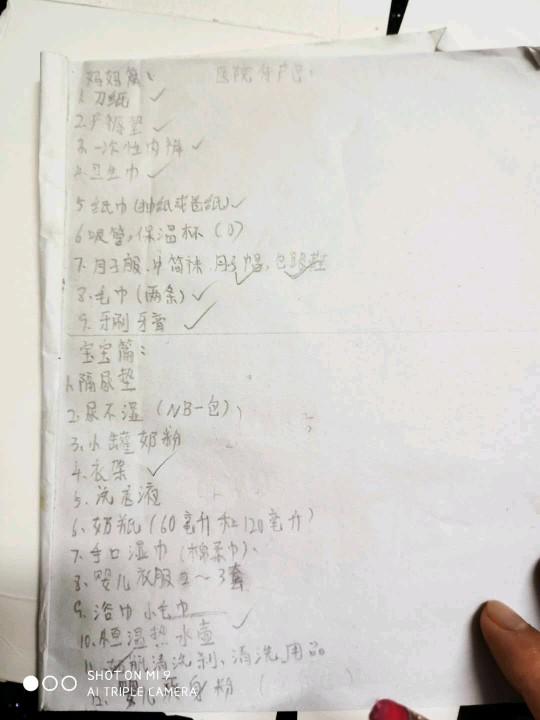 妈妈篇: 医院待产包:
1.刀纸 ✓
2.产褥垫 ✓
3.一次性内裤 ✓
4.卫生巾 ✓
5.纸巾(抽纸或卷纸) ✓
6.吸管,保温杯()
7.月子服,中筒袜,月子帽,包跟鞋
8.毛巾(两条) ✓
9.牙刷牙膏 ✓
宝宝篇:
1.隔尿垫
2.尿不湿(NB一包)
3.小罐奶粉
4.衣架 ✓
5.洗衣液
6.奶瓶(60毫升和120毫升)
7.手口湿巾(棉柔巾)
8.婴儿衣服2~3套
9.浴巾小毛巾
10.恒温热水壶 ✓
11.清洗剂,清洗用品
12.婴儿爽身粉
SHOT ON MI 9
AI TRIPLE CAMERA